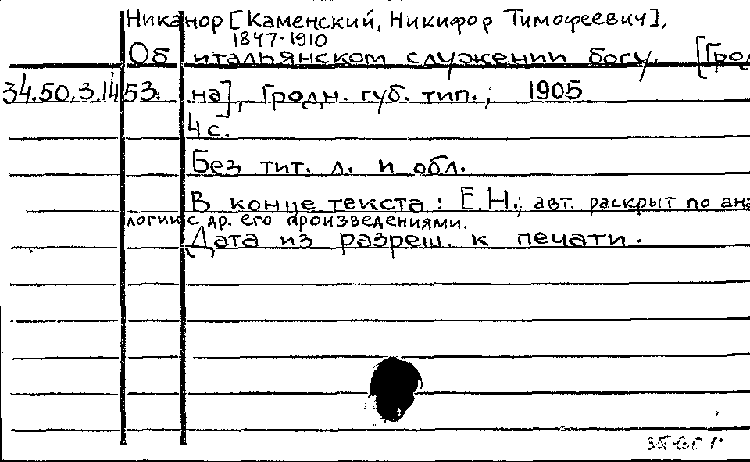 Никанор [Каменский, Никифор Тимофеевич],
1847-1910
Об итальянском служении богу. [Грод
34.50.3.1453. на], Гродн. губ. тип., 1905.
4 с.
Без тит. л. и обл.
В конце текста: Е.Н.; авт. раскрыт по ана
логии с др. его произведениями.
Дата из разреш. к печати.